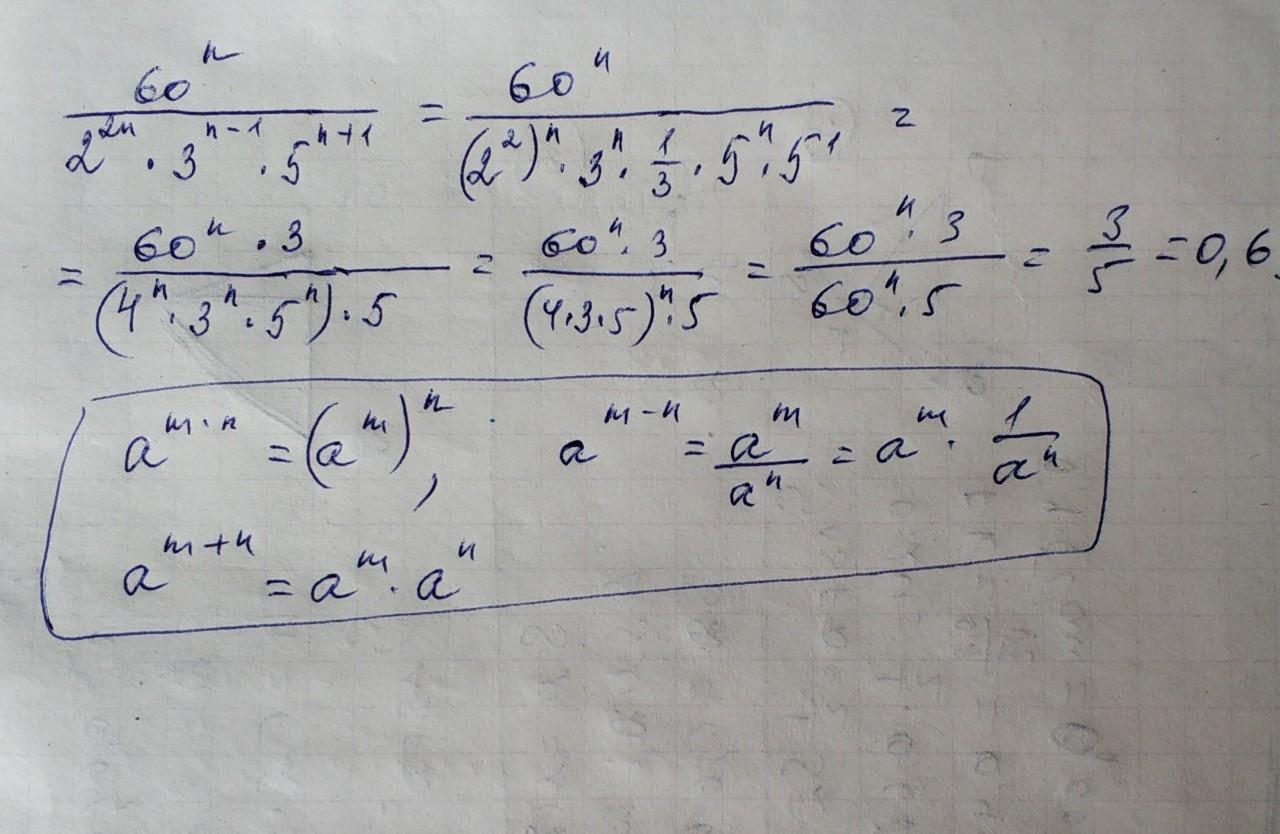 60ⁿ / (2²ⁿ · 3ⁿ⁻¹ · 5ⁿ⁺¹) = 60ⁿ / ((2²)ⁿ · 3ⁿ · 1/3 · 5ⁿ · 5¹) =
= 60ⁿ · 3 / ((4ⁿ · 3ⁿ · 5ⁿ) · 5) = 60ⁿ · 3 / ((4·3·5)ⁿ · 5) = 60ⁿ · 3 / (60ⁿ · 5) = 3/5 = 0,6.
aᵐ·ⁿ = (aᵐ)ⁿ, aᵐ⁻ⁿ = aᵐ/aⁿ = aᵐ · 1/aⁿ
aᵐ⁺ⁿ = aᵐ · aⁿ